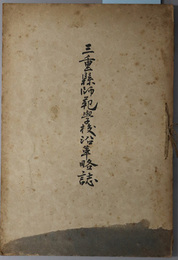 三重縣師範學校沿革略誌